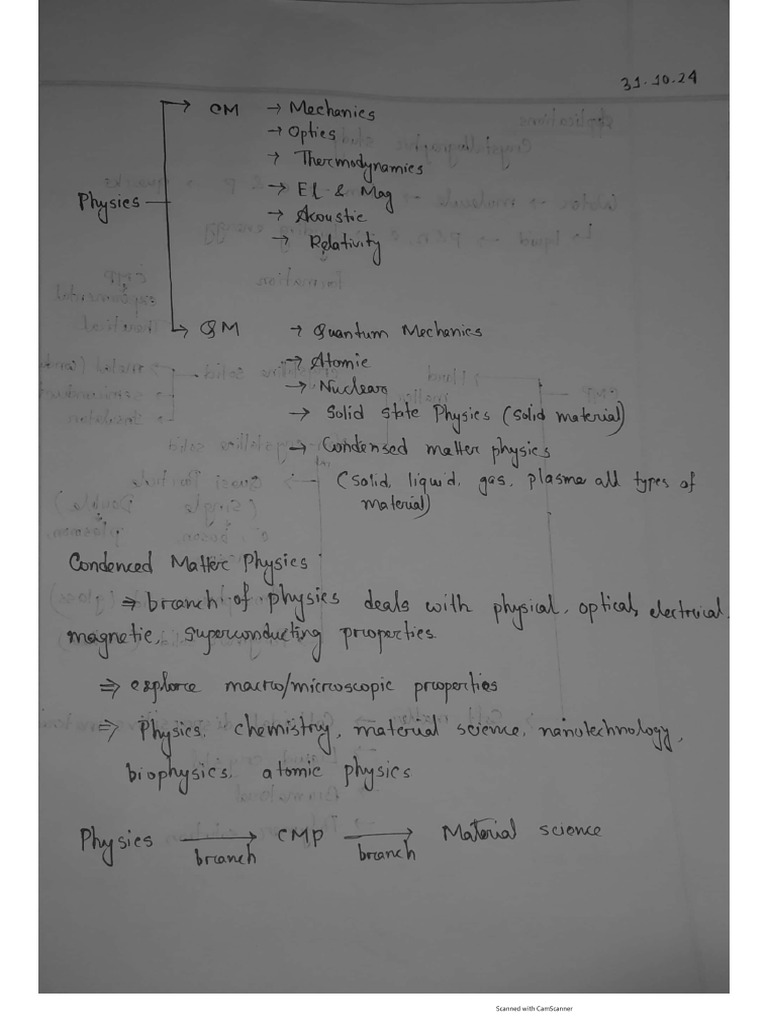 31.10.24
Physics
→ CM → Mechanics
→ Optics
→ Thermodynamics
→ El & Mag
→ Acoustic
→ Relativity
→ QM → Quantum Mechanics
→ Atomic
→ Nuclear
→ Solid state Physics (Solid material)
→ Condensed matter physics
(Solid, liquid, gas, plasma all types of
material)
Condenced Matter Physics
⇒ branch of physics deals with physical, optical, electrical,
magnetic, superconducting properties.
⇒ explore macro/microscopic properties
⇒ Physics, chemistry, material science, nanotechnology,
biophysics, atomic physics
Physics → branch CMP → branch Material science
Scanned with CamScanner